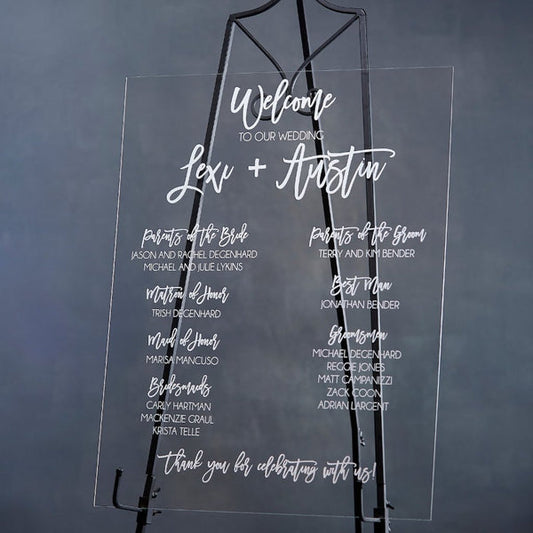 Welcome
TO OUR WEDDING
Lexi + Austin
Parents of the Bride
JASON AND RACHEL DEGENHARD
MICHAEL AND JULIE LYKINS
Matron of Honor
TRISH DEGENHARD
Maid of Honor
MARISA MANCUSO
Bridesmaids
CARLY HARTMAN
MACKENZIE GRAUL
KRISTA TELLE
Parents of the Groom
TERRY AND KIM BENDER
Best Man
JONATHAN BENDER
Groomsmen
MICHAEL DEGENHARD
REGGIE JONES
MATT CAMPANIZZI
ZACK COON
ADRIAN LARGENT
Thank you for celebrating with us!